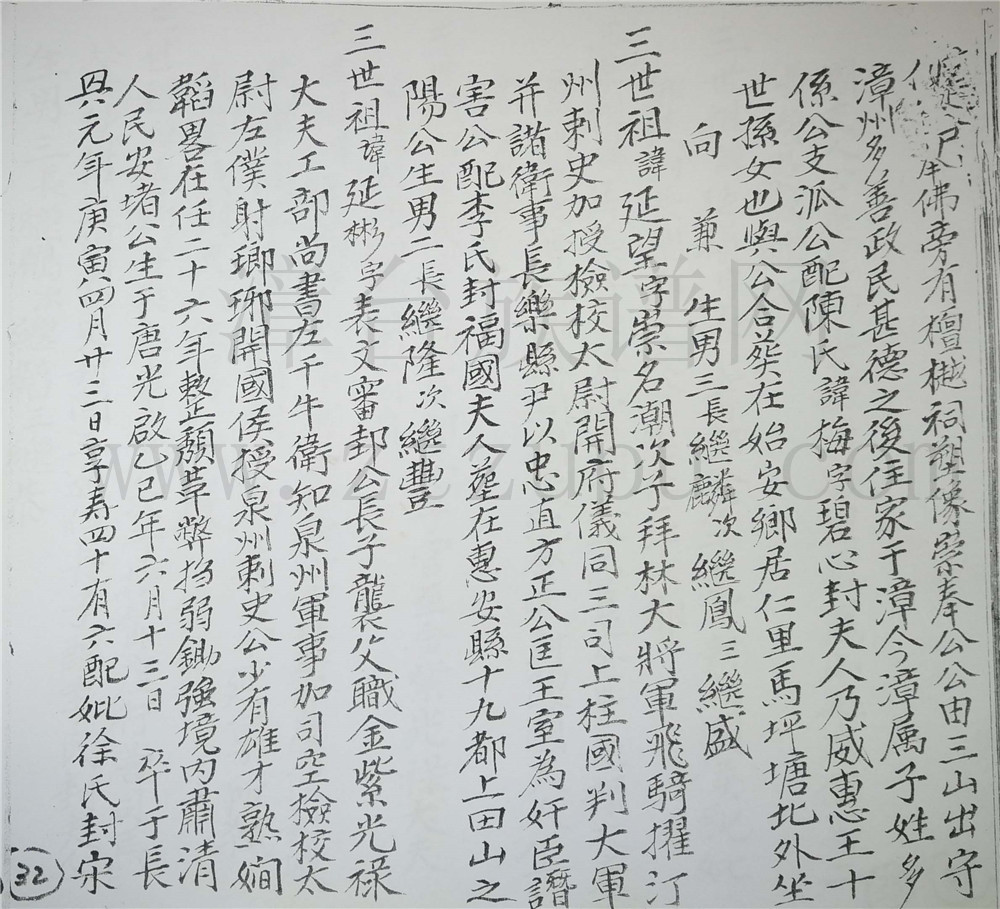 佛旁有檀樾祠塑像崇奉公公由三山出守
漳州多善政民甚德之後住家于漳今漳属子姓多
係公支派公配陳氏諱梅字碧心封夫人乃威惠王十
世孫女也與公合葬在始安鄉居仁里馬坪塘北外坐
向兼 生男三長繼麟次繼鳳三繼盛
三世祖諱延望字崇名潮次子拜林大將軍飛騎擢汀
州刺史加授檢校太尉開府儀同三司上柱國判大軍
并諸衛事長樂縣尹以忠直方正公匡王室為奸臣譖
害公配李氏封福國夫人塟在惠安縣十九都上田山之
陽公生男二長繼隆次繼豐
三世祖諱延彬字表文審邽公長子襲父職金紫光祿
大夫工部尚書左千牛衛知泉州軍事加司空檢校太
尉左僕射瑯琊開國侯授泉州刺史公少有雄才熟嫻
韜畧在任二十六年整頹革弊挡弱鋤強境內肅清
人民安堵公生于唐光啟乙巳年六月十三日 卒于長
興元年庚寅四月廿三日享寿四十有六配妣徐氏封宋
32
www.ztzupu.com
漳台族谱网